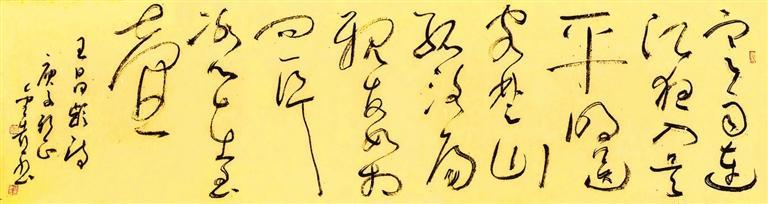 寒雨連
江夜入吳
平明送
客楚山
孤洛陽
親友如相
問一片
冰心在玉
壺
王昌齡詩
庚子
書